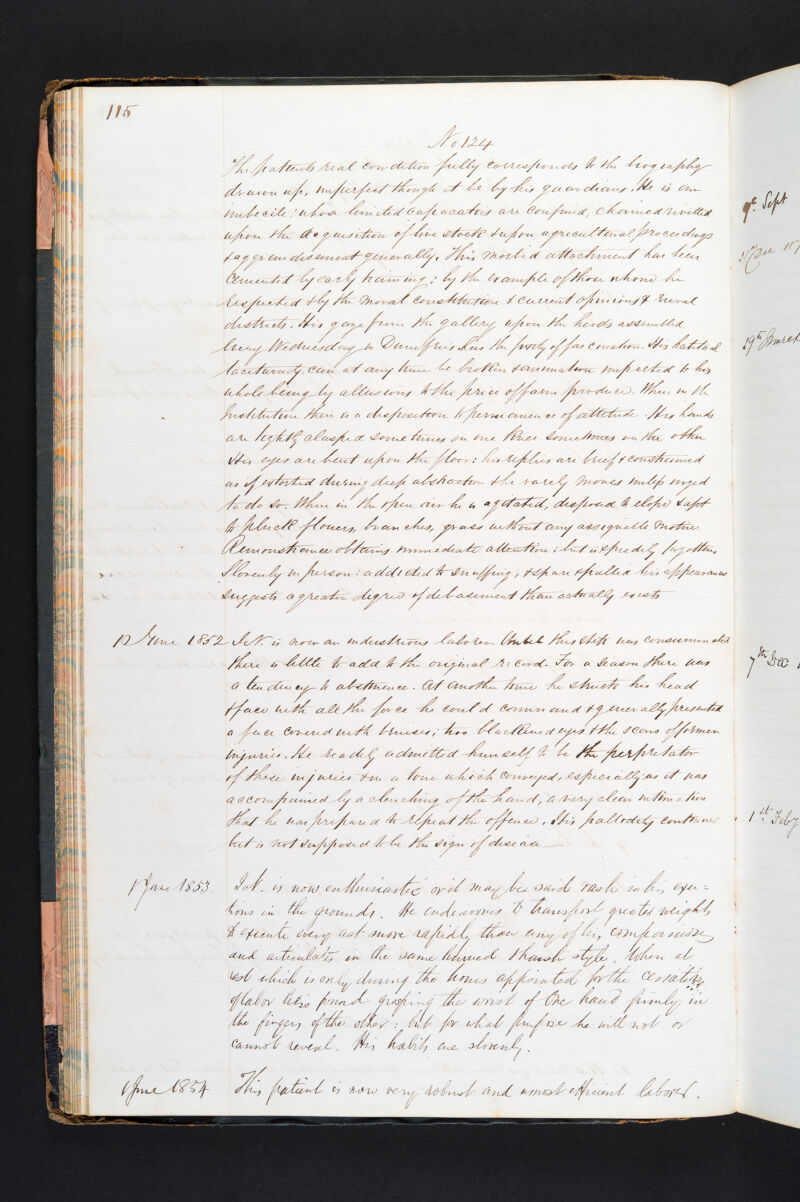 115
No 124
The patients real condition fully corresponds to the biography
drawn up, imperfect though it be by his guardians. He is an
imbecile: whose limited capacities are confined, chained rivetted
upon the acquisition of live stock & upon agricultural proceedings
& aggrandisement generally. This morbid attachment has been
cemented by early training: by the example of those whom he
respected & by the moral constitution & current opinions of rural
districts. His gaze from the gallery upon the herds assembled
every Wednesday in Dumfries has the fixity of fascination. His habitual
taciturnity can at any time be broken & animation imparted to his
whole being by allusions to the price of farm produce. When in the
Institution there is a disposition to permanence of attitude. His hands
are tightly clasped sometimes on one knee sometimes on the other
His eyes are bent upon the floor: his replies are brief & constrained
as if extorted during deep abstraction & he rarely moves unless urged
to do so. When in the open air he is agitated, disposed to elope & apt
to pluck flowers, branches, grass without any assignable motive.
Remonstrance obtains immediate attention: but is speedily forgotten.
Slovenly in person: addicted to snuffing, & spare & pallid his appearance
suggests a greater degree of debasement than actually exists
12 June 1852 J.N. is now an industrious laborer. Until this step was consummated
there is little to add to the original record. For a season there was
a tendency to abstinence. At another time he struck his head
& face with all the force he could command & generally presented
a face covered with bruises; two blackened eyes & the scars of former
injuries. He readily admitted himself to be the perpretator
of these injuries & in a tone which conveyed, especially as it was
accompanied by a clenching of the hand, a very clear intimation
that he was prepared to repeat the offence. His pallidity continues
but is not supposed to be the sign of disease
1 June 1853. J.N. is now enthusiastic or it may be said rash in his exer=
tions in the grounds. He endeavours to transport greater weights
to execute every act more rapidly than any of his companions
and articulates in the same hurried & harsh style. When at
rest which is only during the hours appointed for the cessation
of labor he is found grasping the wrist of one hand firmly in
the fingers of the other: but for what purpose he will not or
cannot reveal. His habits are slovenly.
1 June 1854 This patient is now very robust and a most efficient laborer.
9th Sept
Dec
29th March
7th Dec
1st Feby